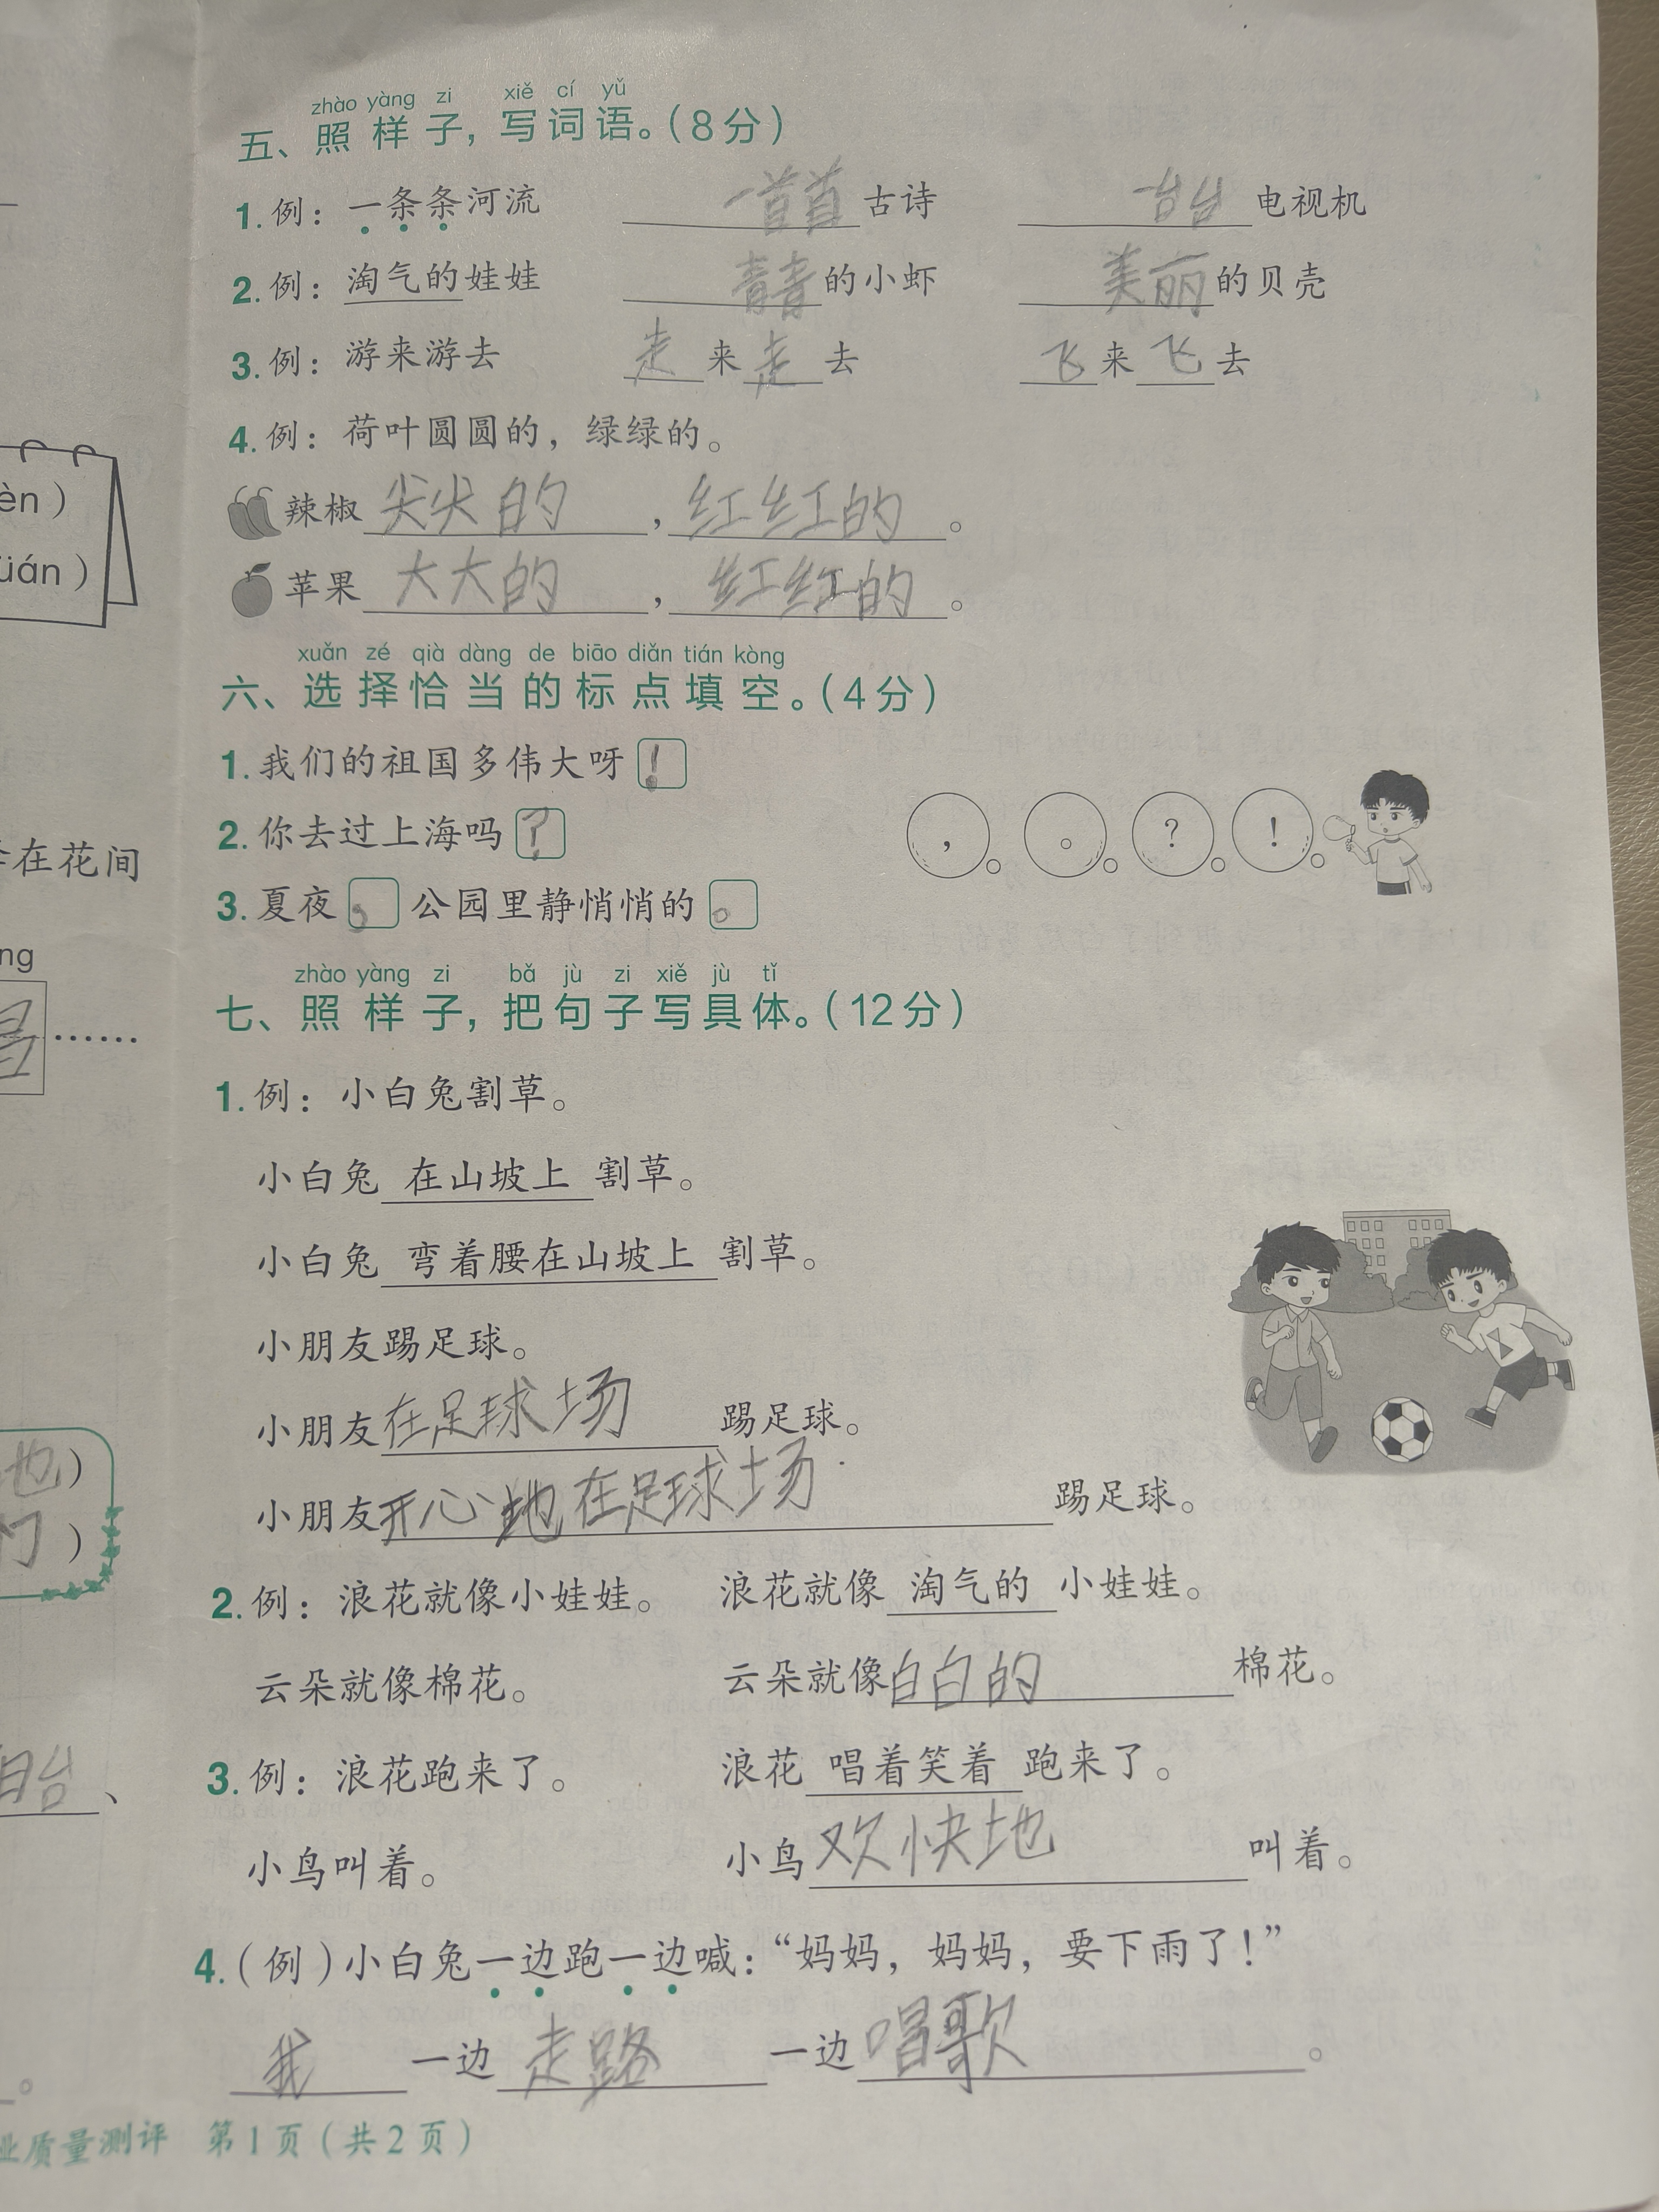 zhào yàng zi xiě cí yǔ
五、照样子，写词语。（8分）
1. 例：一条条河流 一首首古诗 台台电视机
2. 例：淘气的娃娃 青青的小虾 美丽的贝壳
3. 例：游来游去 走来走去 飞来飞去
4. 例：荷叶圆圆的，绿绿的。
èn）
辣椒尖尖的，红红的。
üán）
苹果大大的，红红的。
xuǎn zé qià dàng de biāo diǎn tián kòng
六、选择恰当的标点填空。（4分）
1. 我们的祖国多伟大呀！
2. 你去过上海吗？
， 。 ？ ！
在花间
3. 夏夜，公园里静悄悄的。
ng
zhào yàng zi bǎ jù zi xiě jù tǐ
七、照样子，把句子写具体。（12分）
……
1. 例：小白兔割草。
小白兔 在山坡上 割草。
小白兔 弯着腰在山坡上 割草。
小朋友踢足球。
小朋友在足球场踢足球。
地）
小朋友开心地在足球场踢足球。
）
2. 例：浪花就像小娃娃。 浪花就像 淘气的 小娃娃。
云朵就像棉花。 云朵就像白白的棉花。
3. 例：浪花跑来了。 浪花 唱着笑着 跑来了。
、
小鸟叫着。 小鸟欢快地叫着。
4.（例）小白兔一边跑一边喊：“妈妈，妈妈，要下雨了！”
我一边走路一边唱歌。
。
业质量测评 第1页（共2页）